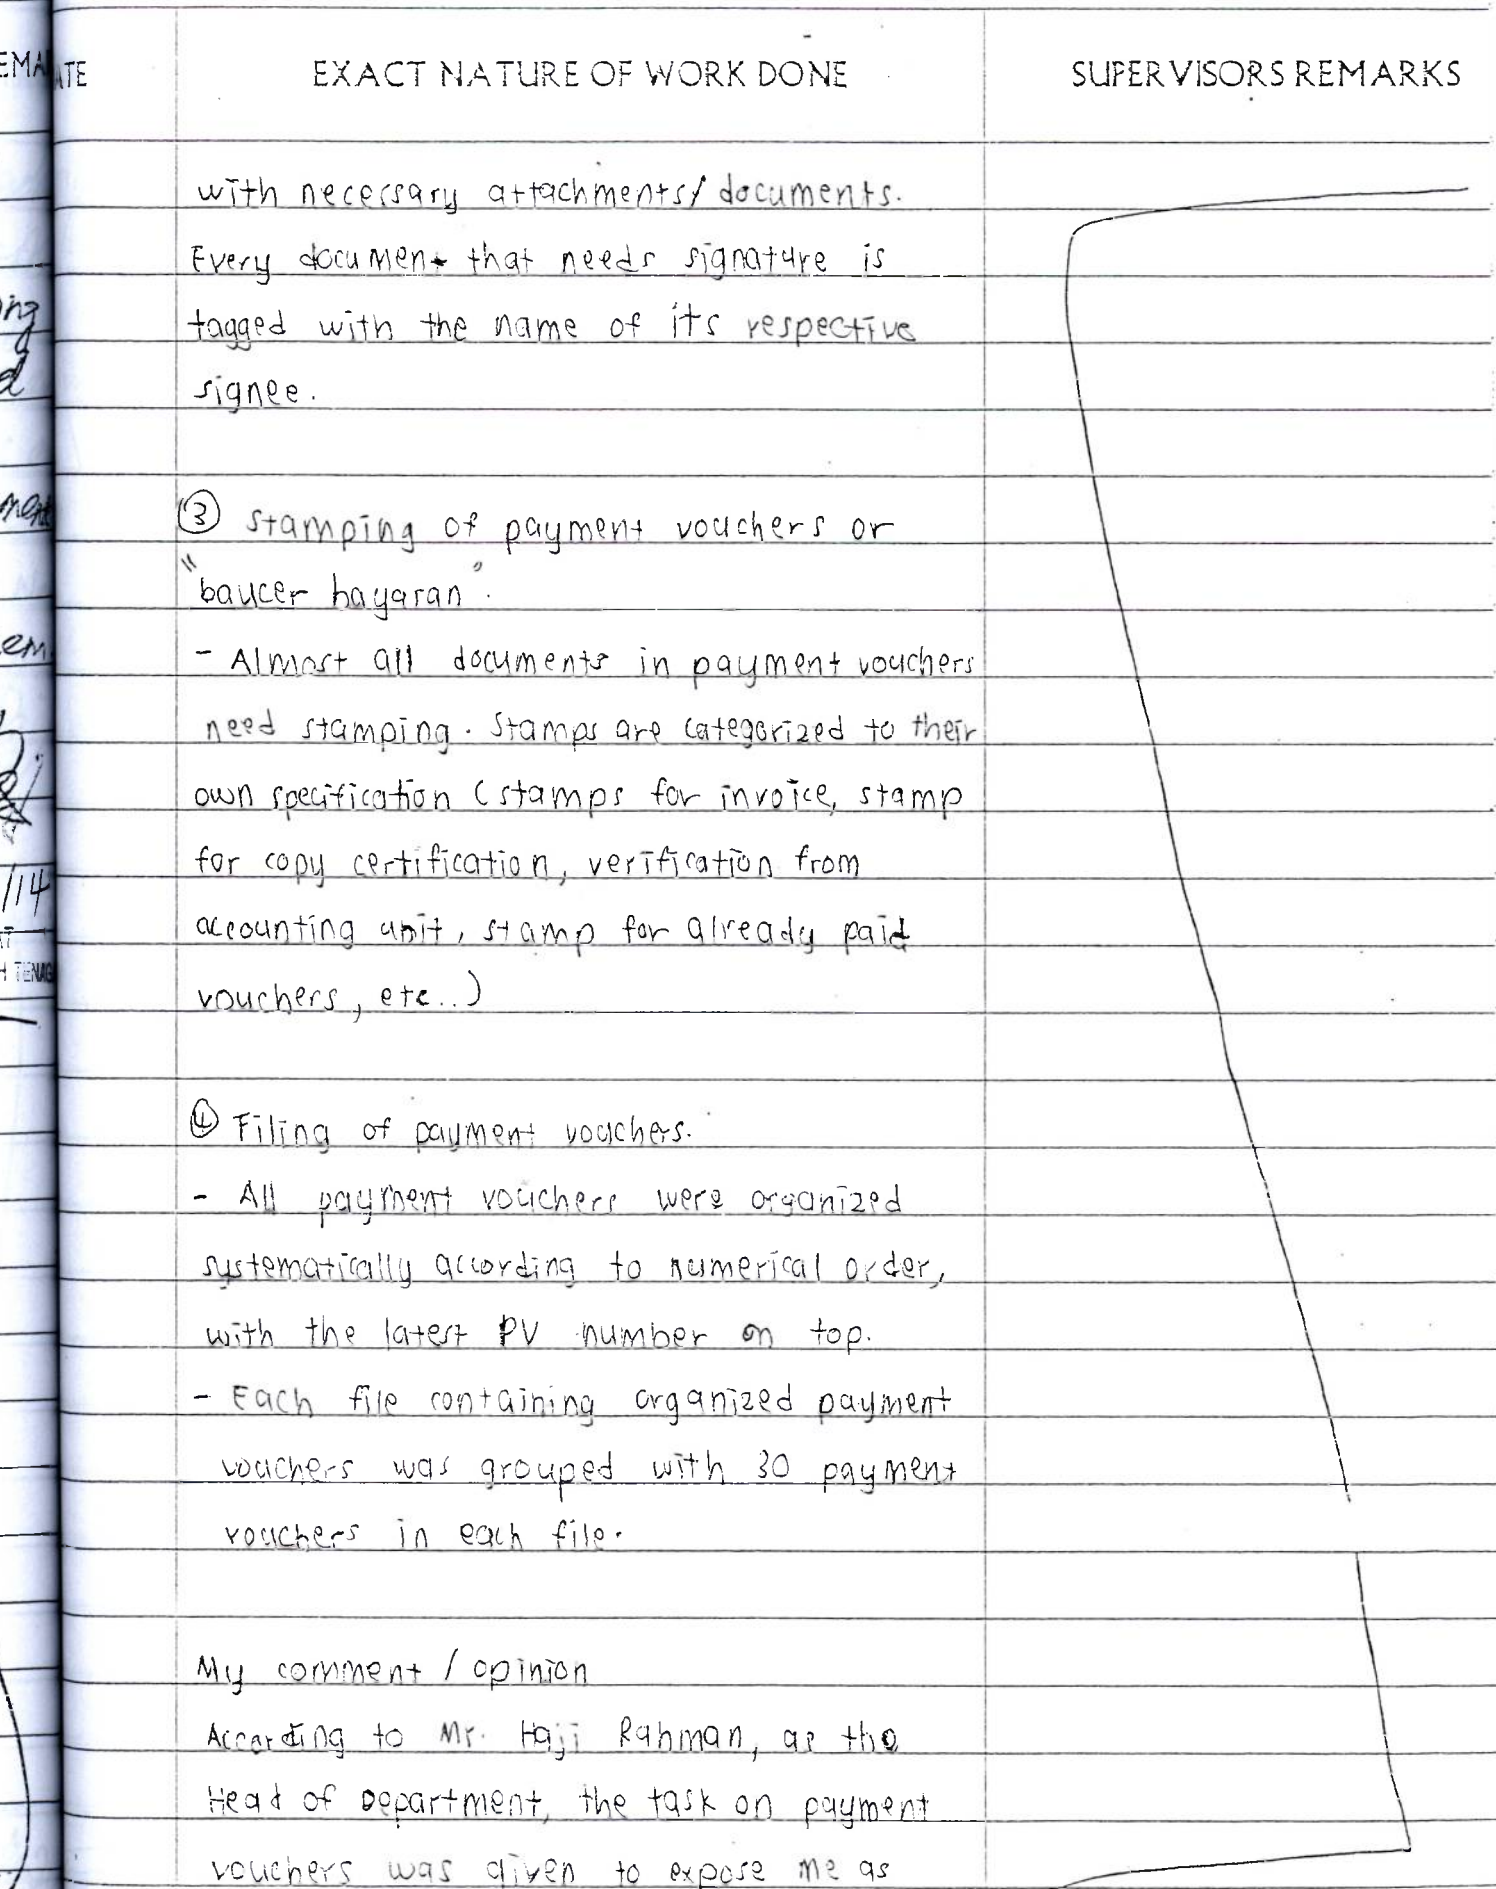 EMA
ATE EXACT NATURE OF WORK DONE SUPERVISORS REMARKS
with necessary attachments/documents.
Every document that needs signature is
tagged with the name of its respective
signee.
③ Stamping of payment vouchers or
"baucer bayaran".
- Almost all documents in payment vouchers
need stamping. Stamps are categorized to their
own specification (stamps for invoice, stamp
for copy certification, verification from
accounting unit, stamp for already paid
vouchers, etc..)
④ Filing of payment vouchers.
- All payment vouchers were organized
systematically according to numerical order,
with the latest PV number on top.
- Each file containing organized payment
vouchers was grouped with 30 payment
vouchers in each file.
My comment / opinion
According to Mr. Haji Rahman, as the
Head of Department, the task on payment
vouchers was given to expose me as
ing
d
ment
em
/14
H TENAG